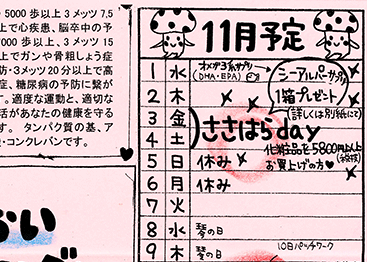 5000 歩以上 3 メッツ 7.5
上で心疾患、脳卒中の予
7000 歩以上、3 メッツ 15
上でガンや骨粗しょう症
防・3メッツ20分以上で高
症、糖尿病の予防に繋が
。適度な運動と、適切な
活があなたの健康を守る
す。 タンパク質の基、ア
・コンクレバンです。
11月予定
1 水 オメガ3系サプリ
(DHA・EPA)
シーアルパーサプリ
1箱プレゼント
(詳しくは別紙にて)
2 木
3 金
4 土
ささはらday
化粧品を5800円以上
お買上げの方
5 日 休み
6 月 休み
7 火
8 水 琴の日
9 木 琴の日
10日パッチワーク